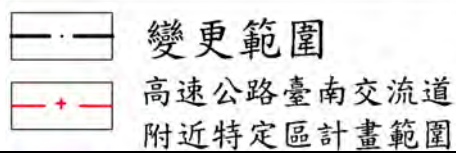 變更範圍
高速公路臺南交流道
附近特定區計畫範圍